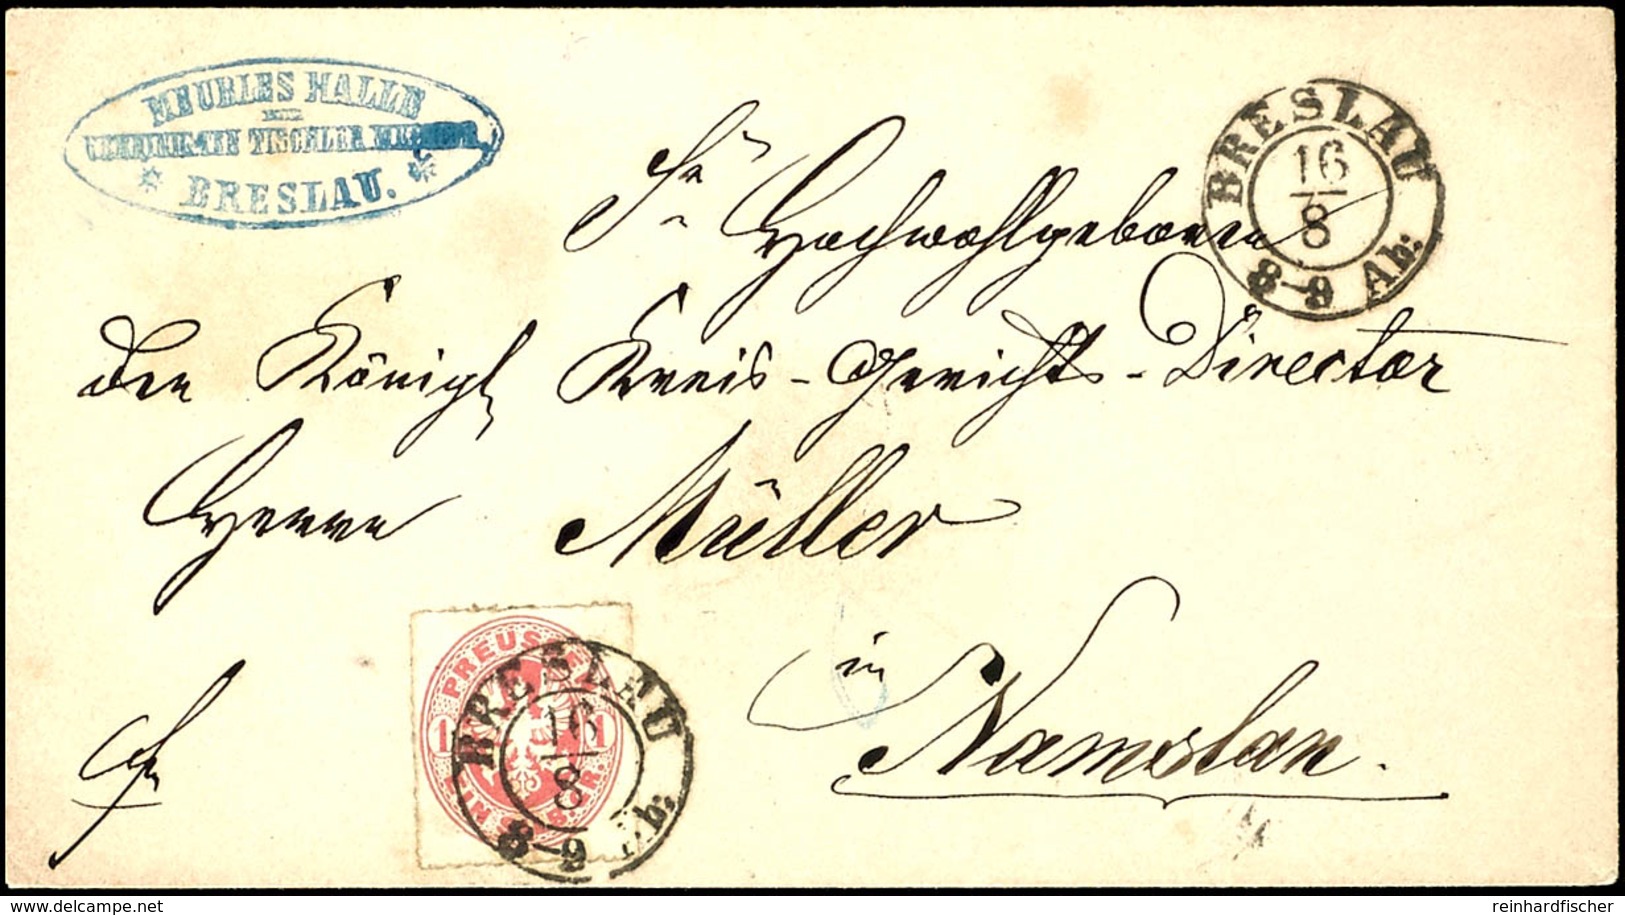 MEUBLES HALLE
TISCHLER
* BRESLAU. *
BRESLAU
16
8
8-9 Ab:
Sr Hochwohlgeboren
den Königl Kreis-Gerichts-Director
Herrn Müller
in
Namslau.
fr
PREUSS
1 1
BRESLAU
16
8
8-9 Ab:
www.delcampe.net
reinhardfischer